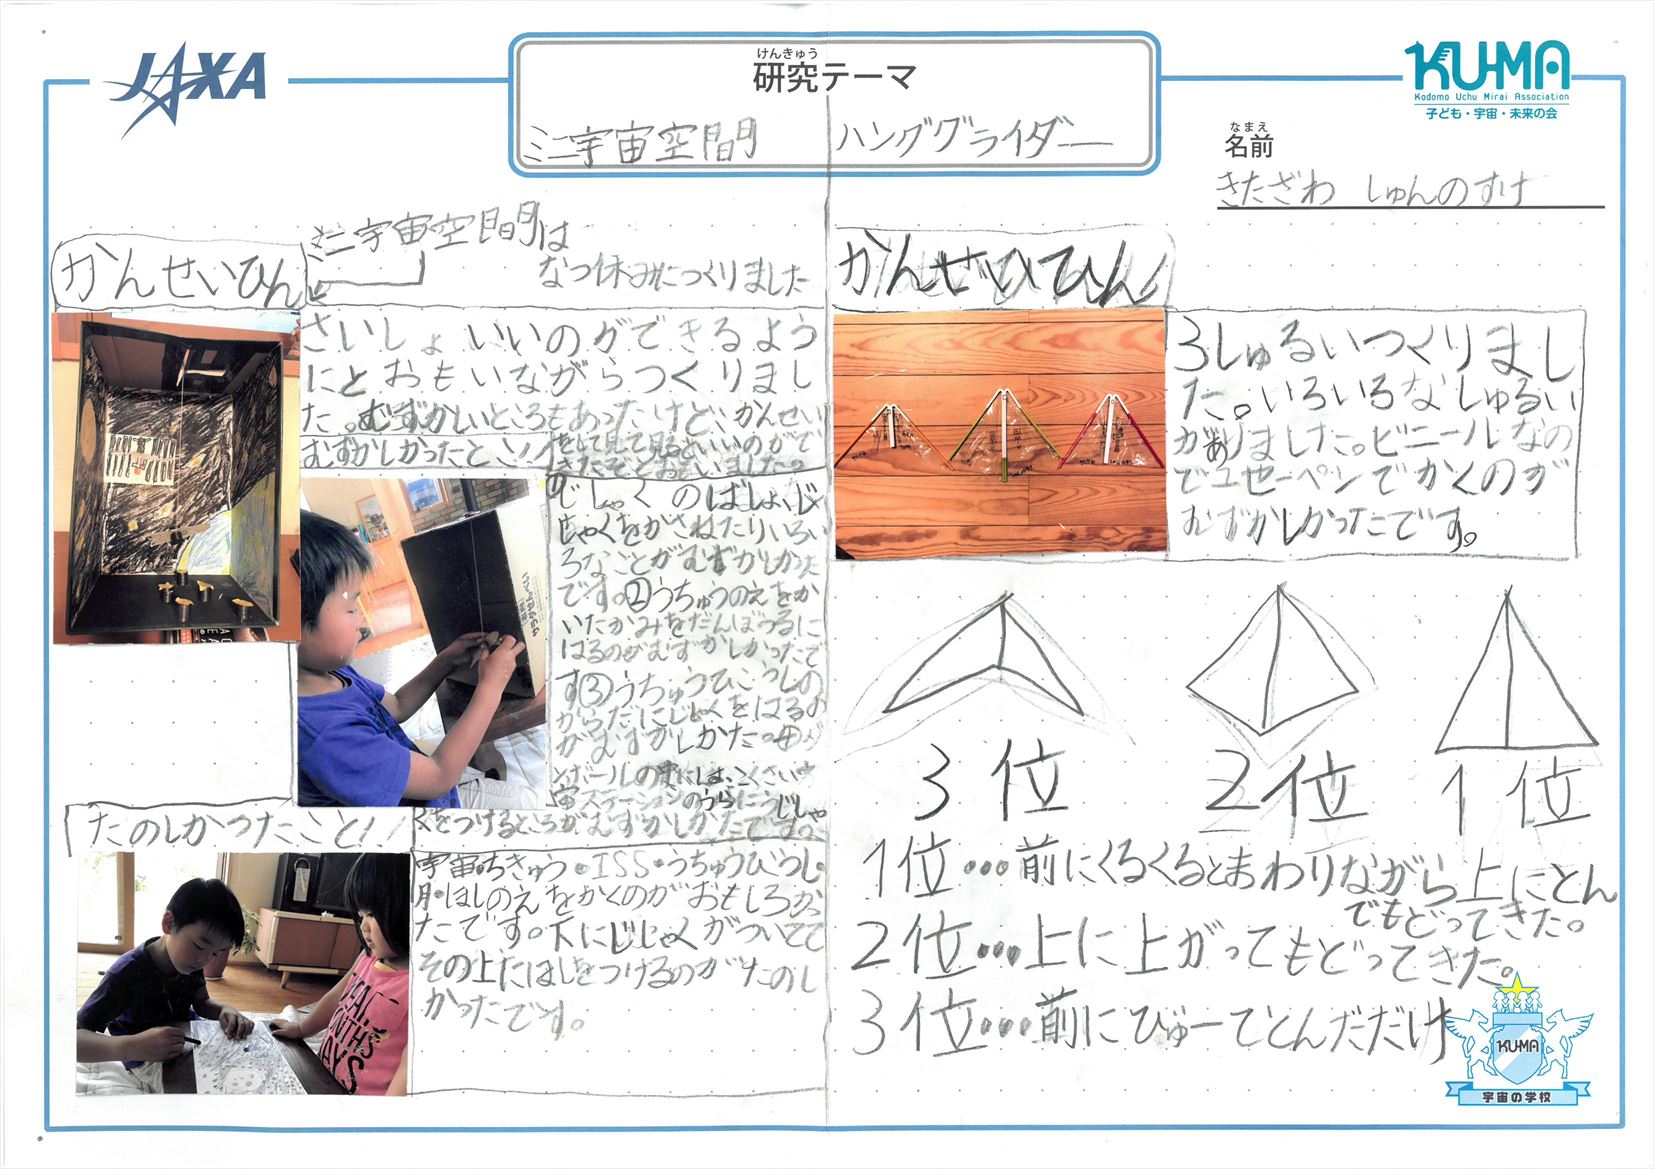 JAXA
けんきゅう
研究テーマ
ミニ宇宙空間 ハンググライダー
KU-MA
Kodomo Uchu Mirai Association
子ども・宇宙・未来の会
なまえ
名前
きたざわ しゅんのすけ
ミニ宇宙空間は
なつ休みにつくりました
かんせいひん
さいしょ いいのができるよう
にと おもいながらつくりまし
た。むずかしいところもあったけど、かんせい
をして見て見るといいのがで
きたぞとおもいました。
むずかしかったところ
じしゃくのばしょ、じ
しゃくをかさねたりいろい
ろなことがむずかしかった
です。②うちゅうのえをか
いたかみをだんぼうるに
はるのがむずかしかったで
す③うちゅうひこうしの
からだにじしゃくをはるの
がむずかしかた。④ダ
ンボールの中には、こくさいう
宙ステーションのうらにじしゃ
くをつけるところがむずかしかたです。
たのしかったこと!!
宇宙・ちきゅう・ISS・うちゅうひこうし・
月・ほしのえをかくのがおもしろかっ
たです。下にじしゃくがついてて
その上たほしをつけるのがたのし
かったです。
かんせいひん
3しゅるいつくりまし
た。いろいろなしゅるい
がありました。ビニールなの
でユセーペンでかくのが
むずかしかったです。
3位 2位 1位
1位…前にくるくるとまわりながら上にとん
でもどってきた。
2位…上に上がってもどってきた。
3位…前にびゅーてとんだだけ
KUMA
宇宙の学校